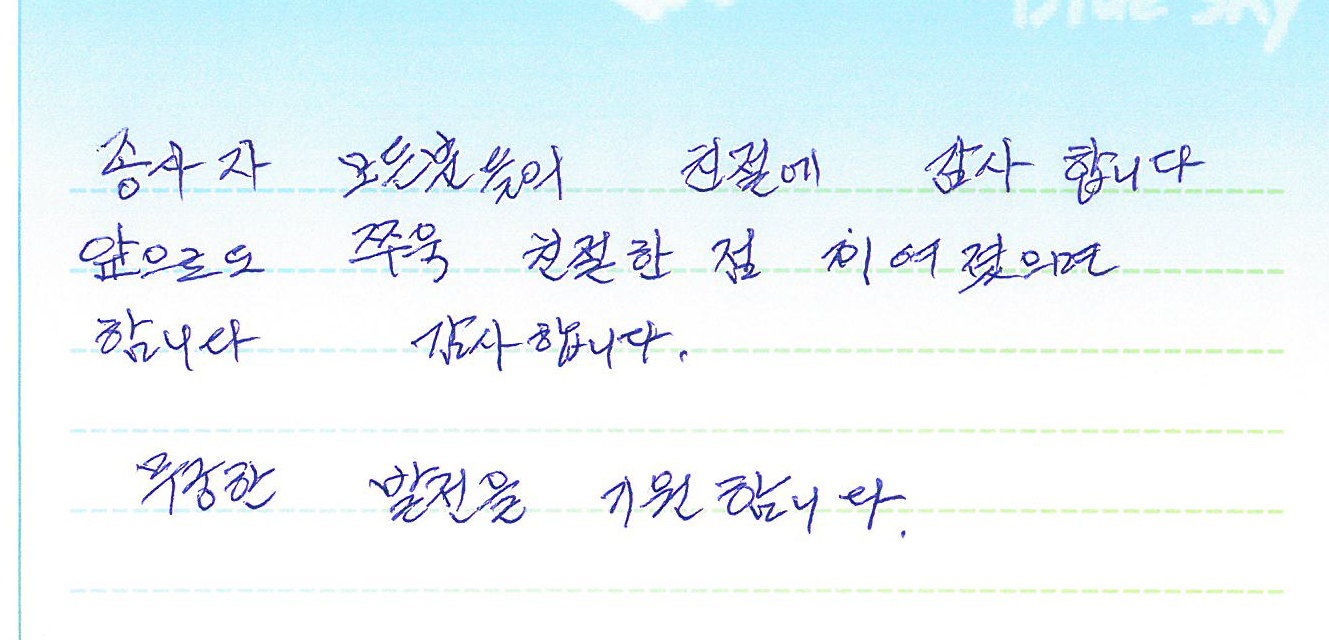 Blue Sky
종사자 모든분들의 친절에 감사 합니다
앞으로도 쭈욱 친절한 점 이여졌으면
합니다 감사합니다.
무궁한 발전을 기원합니다.